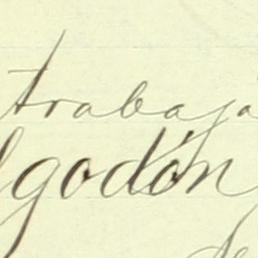 trabaja
lgodón
de